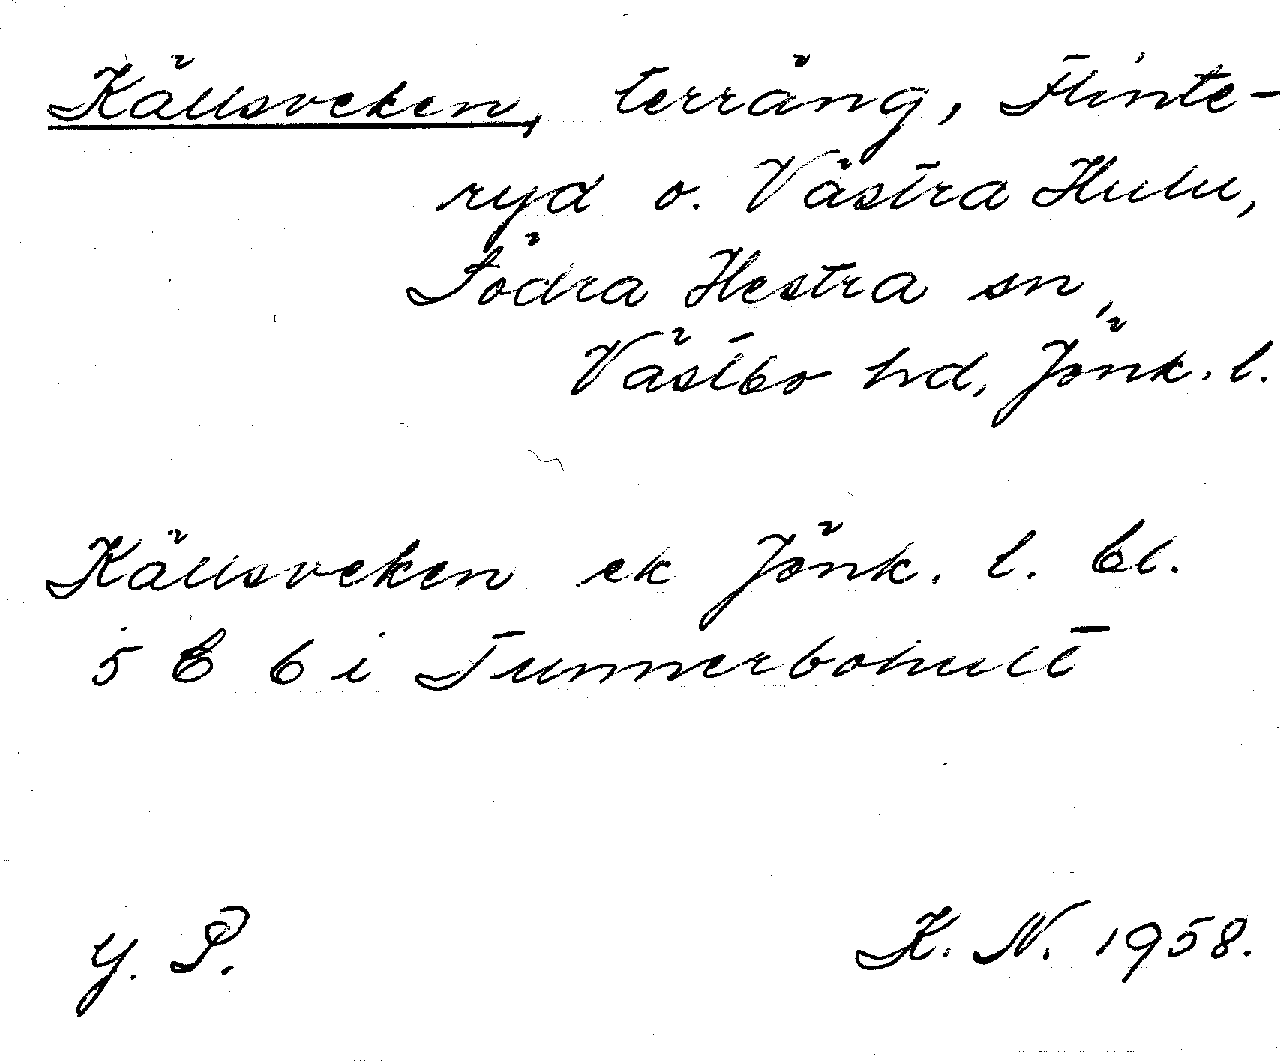 Källsveken, terräng, Flinte-
ryd o. Västra Hulu,
Södra Hestra sn,
Västbo hd, Jönk. l.
Källsveken ek Jönk. l. bl.
5 E 6 i Tunnerbohult
G. P.
K. N. 1958.